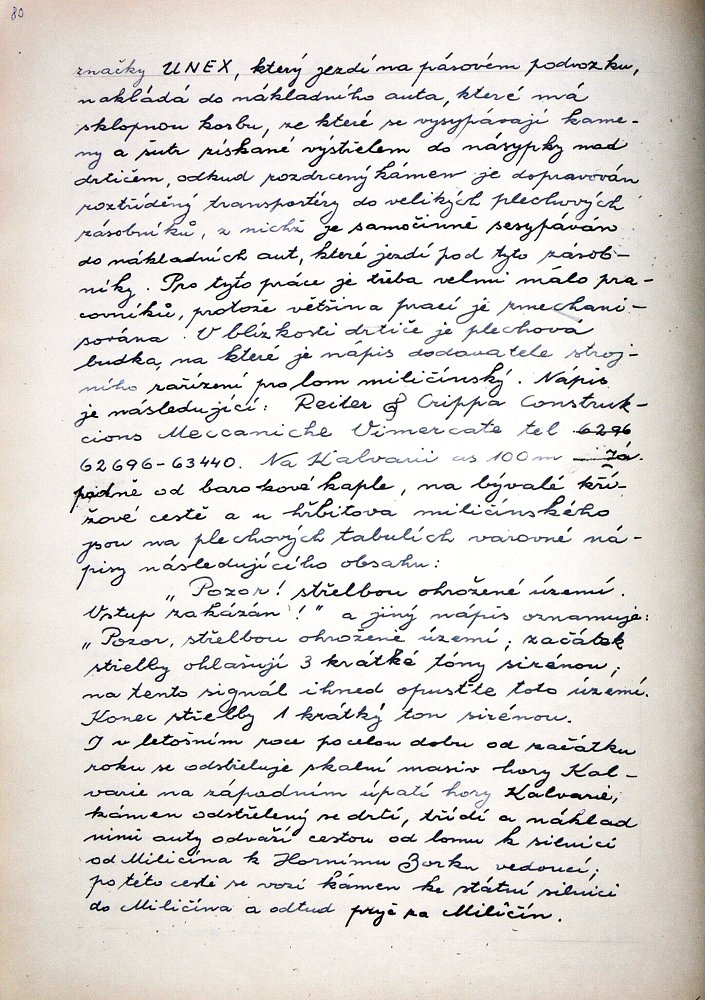 80
značky UNEX, který jezdí na pásovém podvozku,
nakládá do nákladního auta, které má
sklopnou korbu, ze které se vysypávají kame-
ny a šutr získané výstřelem do násypky nad
drtičem, odkud rozdrcený kámen je dopravován
roztříděný transportéry do velikých plechových
zásobníků, z nichž je samočinně sesypáván
do nákladních aut, které jezdí pod tyto zásob-
níky. Pro tyto práce je třeba velmi málo pra-
covníků, protože většina prací je zmechani-
sována. V blízkosti drtiče je plechová
budka, na které je nápis dodavatele stroj-
ního zařízení pro lom miličínský. Nápis
je následující: Reiter & Crippa Construk-
cions Meccaniche Vimercate tel 6296
62696-63440. Na Kalvarii as 100 m
padně od barokové kaple, na bývalé kří-
žové cestě a u hřbitova miličínského
jsou na plechových tabulích varovné ná-
pisy následujícího obsahu:
„Pozor! střelbou ohrožené území.
Vstup zakázán!" a jiný nápis oznamuje:
„Pozor, střelbou ohrožené území; začátek
střelby ohlašují 3 krátké tóny sirénou;
na tento signál ihned opusťte toto území.
Konec střelby 1 krátký ton sirénou.
I v letošním roce po celou dobu od začátku
roku se odstřeluje skalní masiv hory Kal-
varie na západním úpatí hory Kalvarie;
kámen odstřelený se drtí, třídí a náklad
nimi auty odváží cestou od lomu k silnici
od Miličína k Hornímu Borku vedoucí;
po této cestě se vozí kámen ke státní silnici
do Miličína a odtud pryč za Miličín.